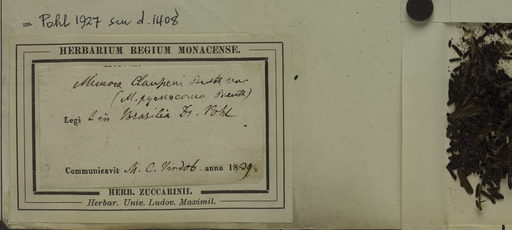 = Pohl 1927 sen d. 1408
HERBARIUM REGIUM MONACENSE.
Mimosa Clausseni Benth var
(M. pycnocoma Benth)
Legi in Brasilia Dr. Pohl
Communicavit M. C. Vindob. anno 1839
HERB. ZUCCARINII.
Herbar. Univ. Ludov. Maximil.